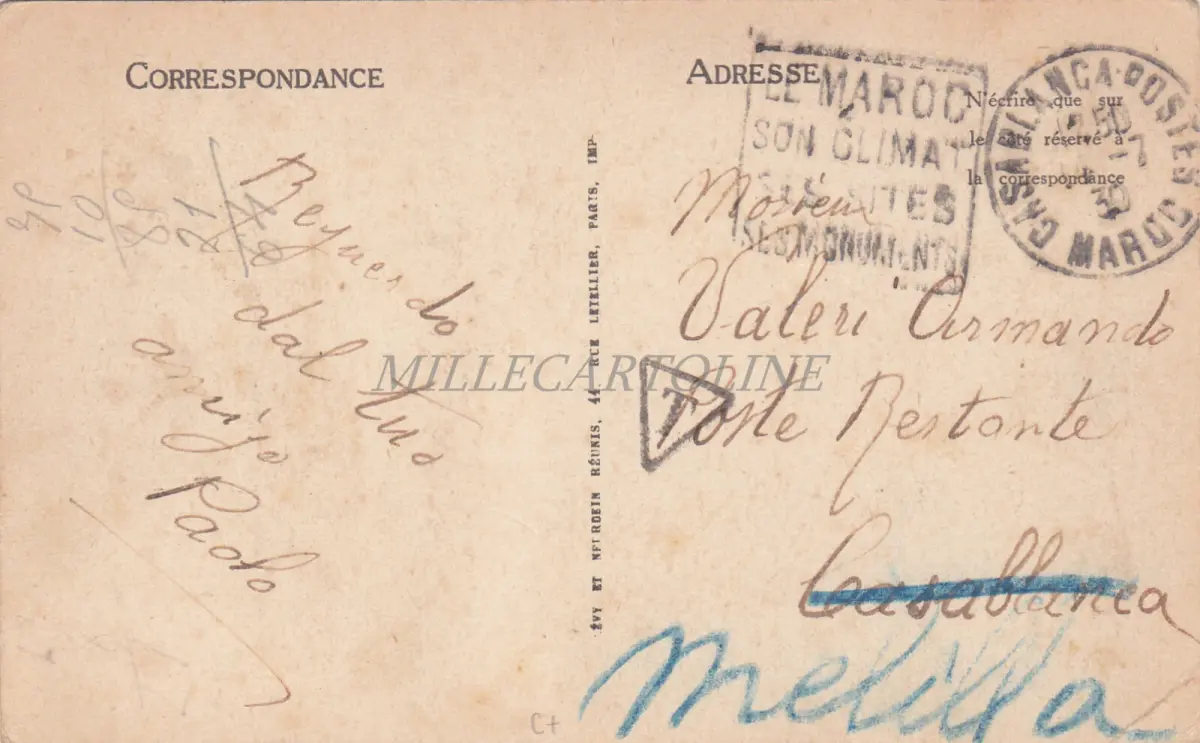 CORRESPONDANCE
ADRESSE
N'écrire que sur
le côté réservé à
la correspondance
LE MAROC
SON CLIMAT
SES SITES
SES MONUMENTS
CASABLANCA-POSTES
MAROC
30
dal tuo
amijo
Paolo
21
10
LÉVY ET NEURDEIN RÉUNIS, 44 RUE LETELLIER, PARIS, IMP
Valeri Armando
T
Poste Restante
Casablanca
Melilla
MILLECARTOLINE